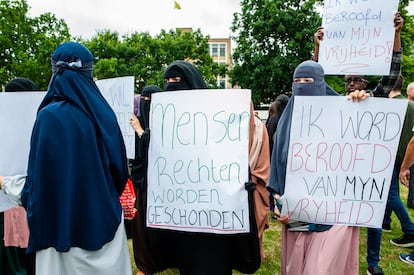 IK WORD
BEROOFD
VAN MIJN
VRIJHEID!
Mensen
Rechten
WORDEN
GESCHONDEN
IK WORD
BEROOFD
VAN MYN
VRIJHEID